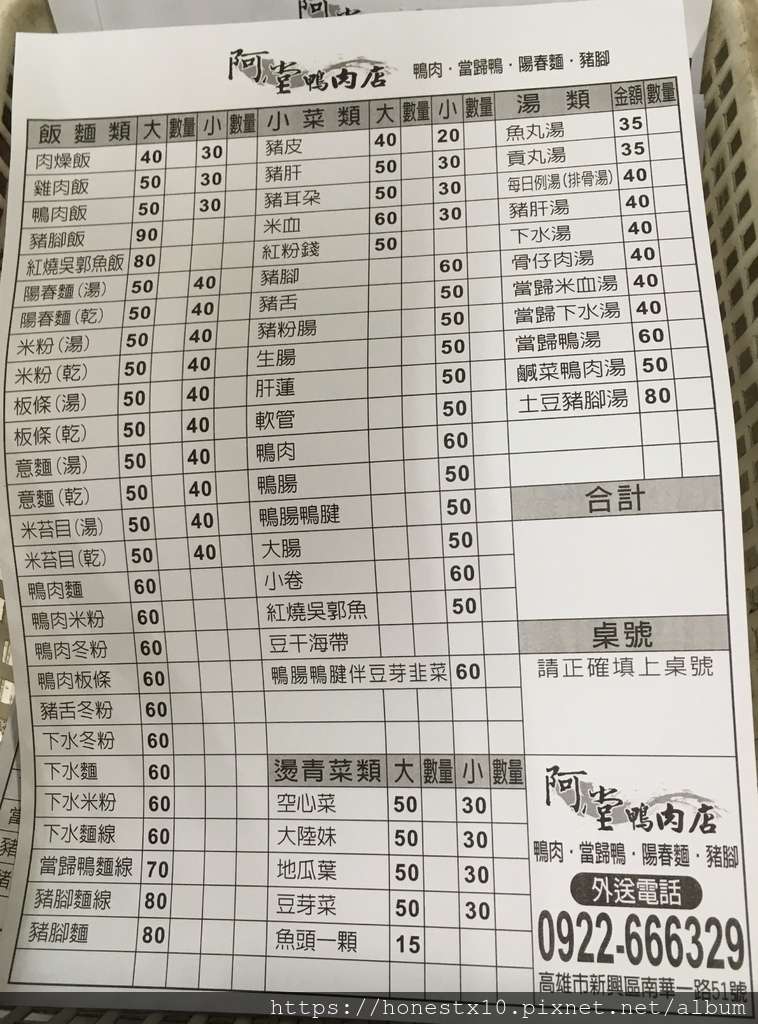 阿堂鴨肉店
鴨肉・當歸鴨・陽春麵・豬腳
飯麵類 大 數量 小 數量
肉燥飯 40 30
雞肉飯 50 30
鴨肉飯 50 30
豬腳飯 90
紅燒吳郭魚飯 80
陽春麵(湯) 50 40
陽春麵(乾) 50 40
米粉(湯) 50 40
米粉(乾) 50 40
板條(湯) 50 40
板條(乾) 50 40
意麵(湯) 50 40
意麵(乾) 50 40
米苔目(湯) 50 40
米苔目(乾) 50 40
鴨肉麵 60
鴨肉米粉 60
鴨肉冬粉 60
鴨肉板條 60
豬舌冬粉 60
下水冬粉 60
下水麵 60
下水米粉 60
下水麵線 60
當歸鴨麵線 70
豬腳麵線 80
豬腳麵 80
小菜類 大 數量 小 數量
豬皮 40 20
豬肝 50 30
豬耳朵 50 30
米血 60 30
紅粉錢 50
豬腳 60
豬舌 50
豬粉腸 50
生腸 50
肝蓮 50
軟管 50
鴨肉 60
鴨腸 50
鴨腸鴨腱 50
大腸 50
小卷 60
紅燒吳郭魚 50
豆干海帶
鴨腸鴨腱伴豆芽韭菜 60
燙青菜類 大 數量 小 數量
空心菜 50 30
大陸妹 50 30
地瓜葉 50 30
豆芽菜 50 30
魚頭一顆 15
湯類 金額 數量
魚丸湯 35
貢丸湯 35
每日例湯(排骨湯) 40
豬肝湯 40
下水湯 40
骨仔肉湯 40
當歸米血湯 40
當歸下水湯 40
當歸鴨湯 60
鹹菜鴨肉湯 50
土豆豬腳湯 80
合計
桌號
請正確填上桌號
阿堂鴨肉店
鴨肉・當歸鴨・陽春麵・豬腳
外送電話
0922-666329
高雄市新興區南華一路51號
https://honestx10.pixnet.net/album